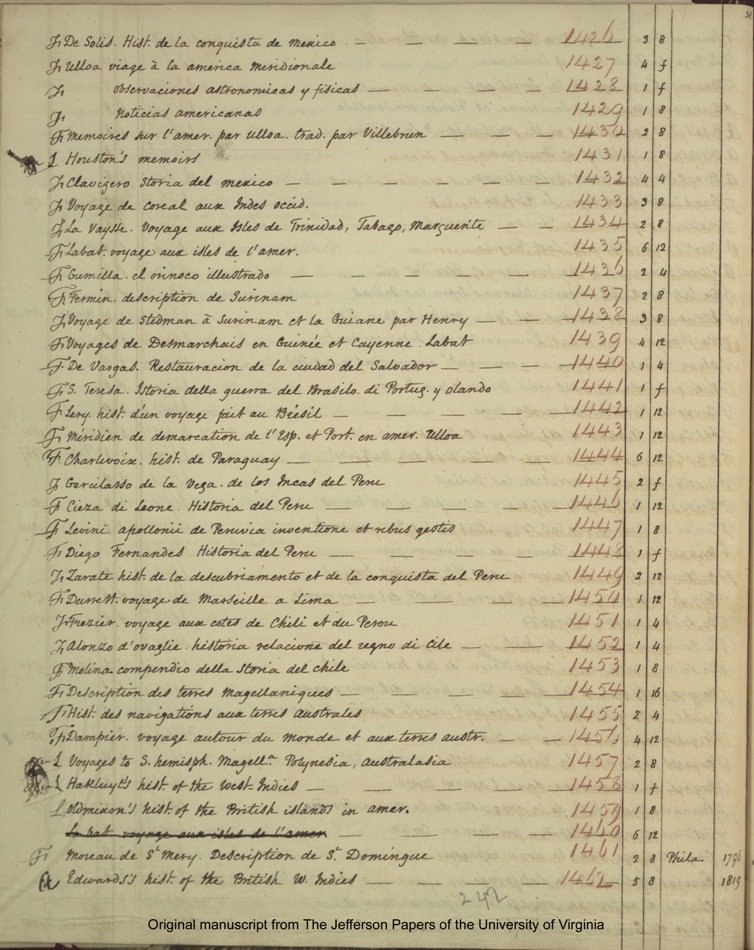 Fr De Solis. Hist. de la conquista de mexico — — — — 1426 3 8
Fr Ulloa viage à la america meridionale 1427 4 f
Fr observaciones astronomicas y fisicas — — — — 1428 1 f
Fr noticias americanas 1429 1 8
Fr Memoires sur l'amer. par Ulloa. trad. par Villebrun — — — 1430 2 8
L Houston's memoirs 1431 1 8
Fr Clavigero Storia del mexico — — — — — — 1432 4 4
Fr Voyage de coreal aux Indes occid. 1433 3 8
Fr La Vaysse. Voyage aux Isles de Trinidad, Tabago, Marguerite — — 1434 2 8
Fr Labat. voyage aux isles de l'amer. 1435 6 12
Fr Gumilla. el orinoco illustrado — — — — — — 1436 2 4
Fr Fermin. description de Surinam 1437 2 8
Fr Voyage de Stedman à Surinam et la Guiane par Henry — — 1438 3 8
Fr Voyages de Desmarchais en Guinée et Cayenne. Labat 1439 4 12
Fr De Vargas. Restauracion de la ciudad del Salvador — — — 1440 1 4
Fr S. Teresa. Istoria della guerra del Brasilo. di Portug. y olando 1441 1 f
Fr Lery. hist. d'un voyage fait au Brésil — — — — — 1442 1 12
Fr Meridien de demarcation de l'Esp. et Port. en amer. Ulloa 1443 1 12
Fr Charlevoix. hist. de Paraguay — — — — — — 1444 6 12
Fr Garcilasso de la Vega. de los Incas del Peru 1445 2 f
Fr Cieza di Leone. Historia del Peru — — — — — 1446 1 12
Fr Levini apollonii de Peruvia inventione et rebus gestis 1447 1 8
Fr Diego Fernandes Historia del Peru — — — — — 1448 1 f
Fr Zarate hist. de la descubriamento et de la conquista del Peru 1449 2 12
Fr Durrett. voyage de Marseille a Lima — — — — — 1450 1 12
Fr Frezier. voyage aux cotes de Chili et du Perou 1451 1 4
Fr Alonzo d'ovaglie. historia relacione del regno di Cile — — — 1452 1 4
Fr Molina. compendio della Storia del chile 1453 1 8
Fr Description des terres Magellaniques — — — — — 1454 1 16
Fr Hist. des navigations aux terres australes 1455 2 4
Fr Dampier. voyage autour du monde et aux terres austr. — — 1456 4 12
L Voyages to S. hemisph. Magell.a Polynesia, australasia 1457 2 8
L Hakluyt's hist. of the West Indies — — — — — 1458 1 f
L Oldmixon's hist. of the British islands in amer. 1459 1 8
La bat voyage aux isles de l'amer — — — — — 1460 6 12
Fr Moreau de St Mery. Description de St. Domingue 1461 2 8 Phila. 1796
Edwards's hist. of the British W. Indies — — — — 1462 5 8 1819
242
Original manuscript from The Jefferson Papers of the University of Virginia